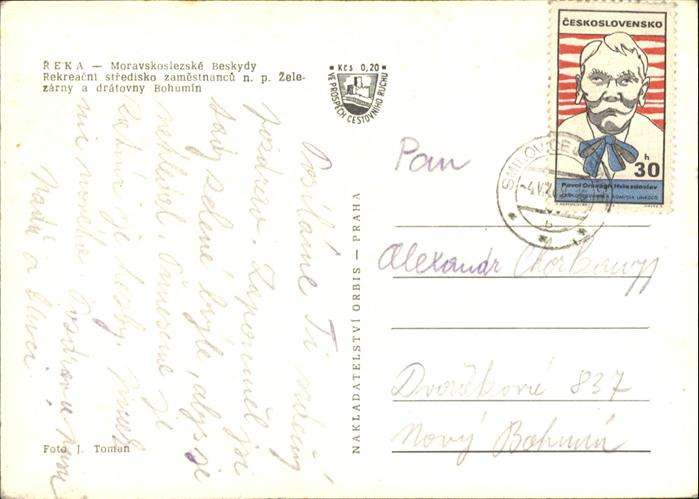 ŘEKA — Moravskoslezské Beskydy
Rekreační středisko zaměstnanců n. p. Žele-
zárny a drátovny Bohumín
KČS 0,20
VE PROSPĚCH CESTOVNÍHO RUCHU
ČESKOSLOVENSKO
h
30
Pavol Országh Hviezdoslav
SMILOVICE
Posíláme Ti srdečný
pozdrav. Zapomněl jsi
tady zelené brýle, abys je
nehledal. Přineseme je
je hezky.
Naďa a
NAKLADATELSTVÍ ORBIS — PRAHA
Pan
Alexandr
Dvořákova 837
Nový Bohumín
Foto J. Toman